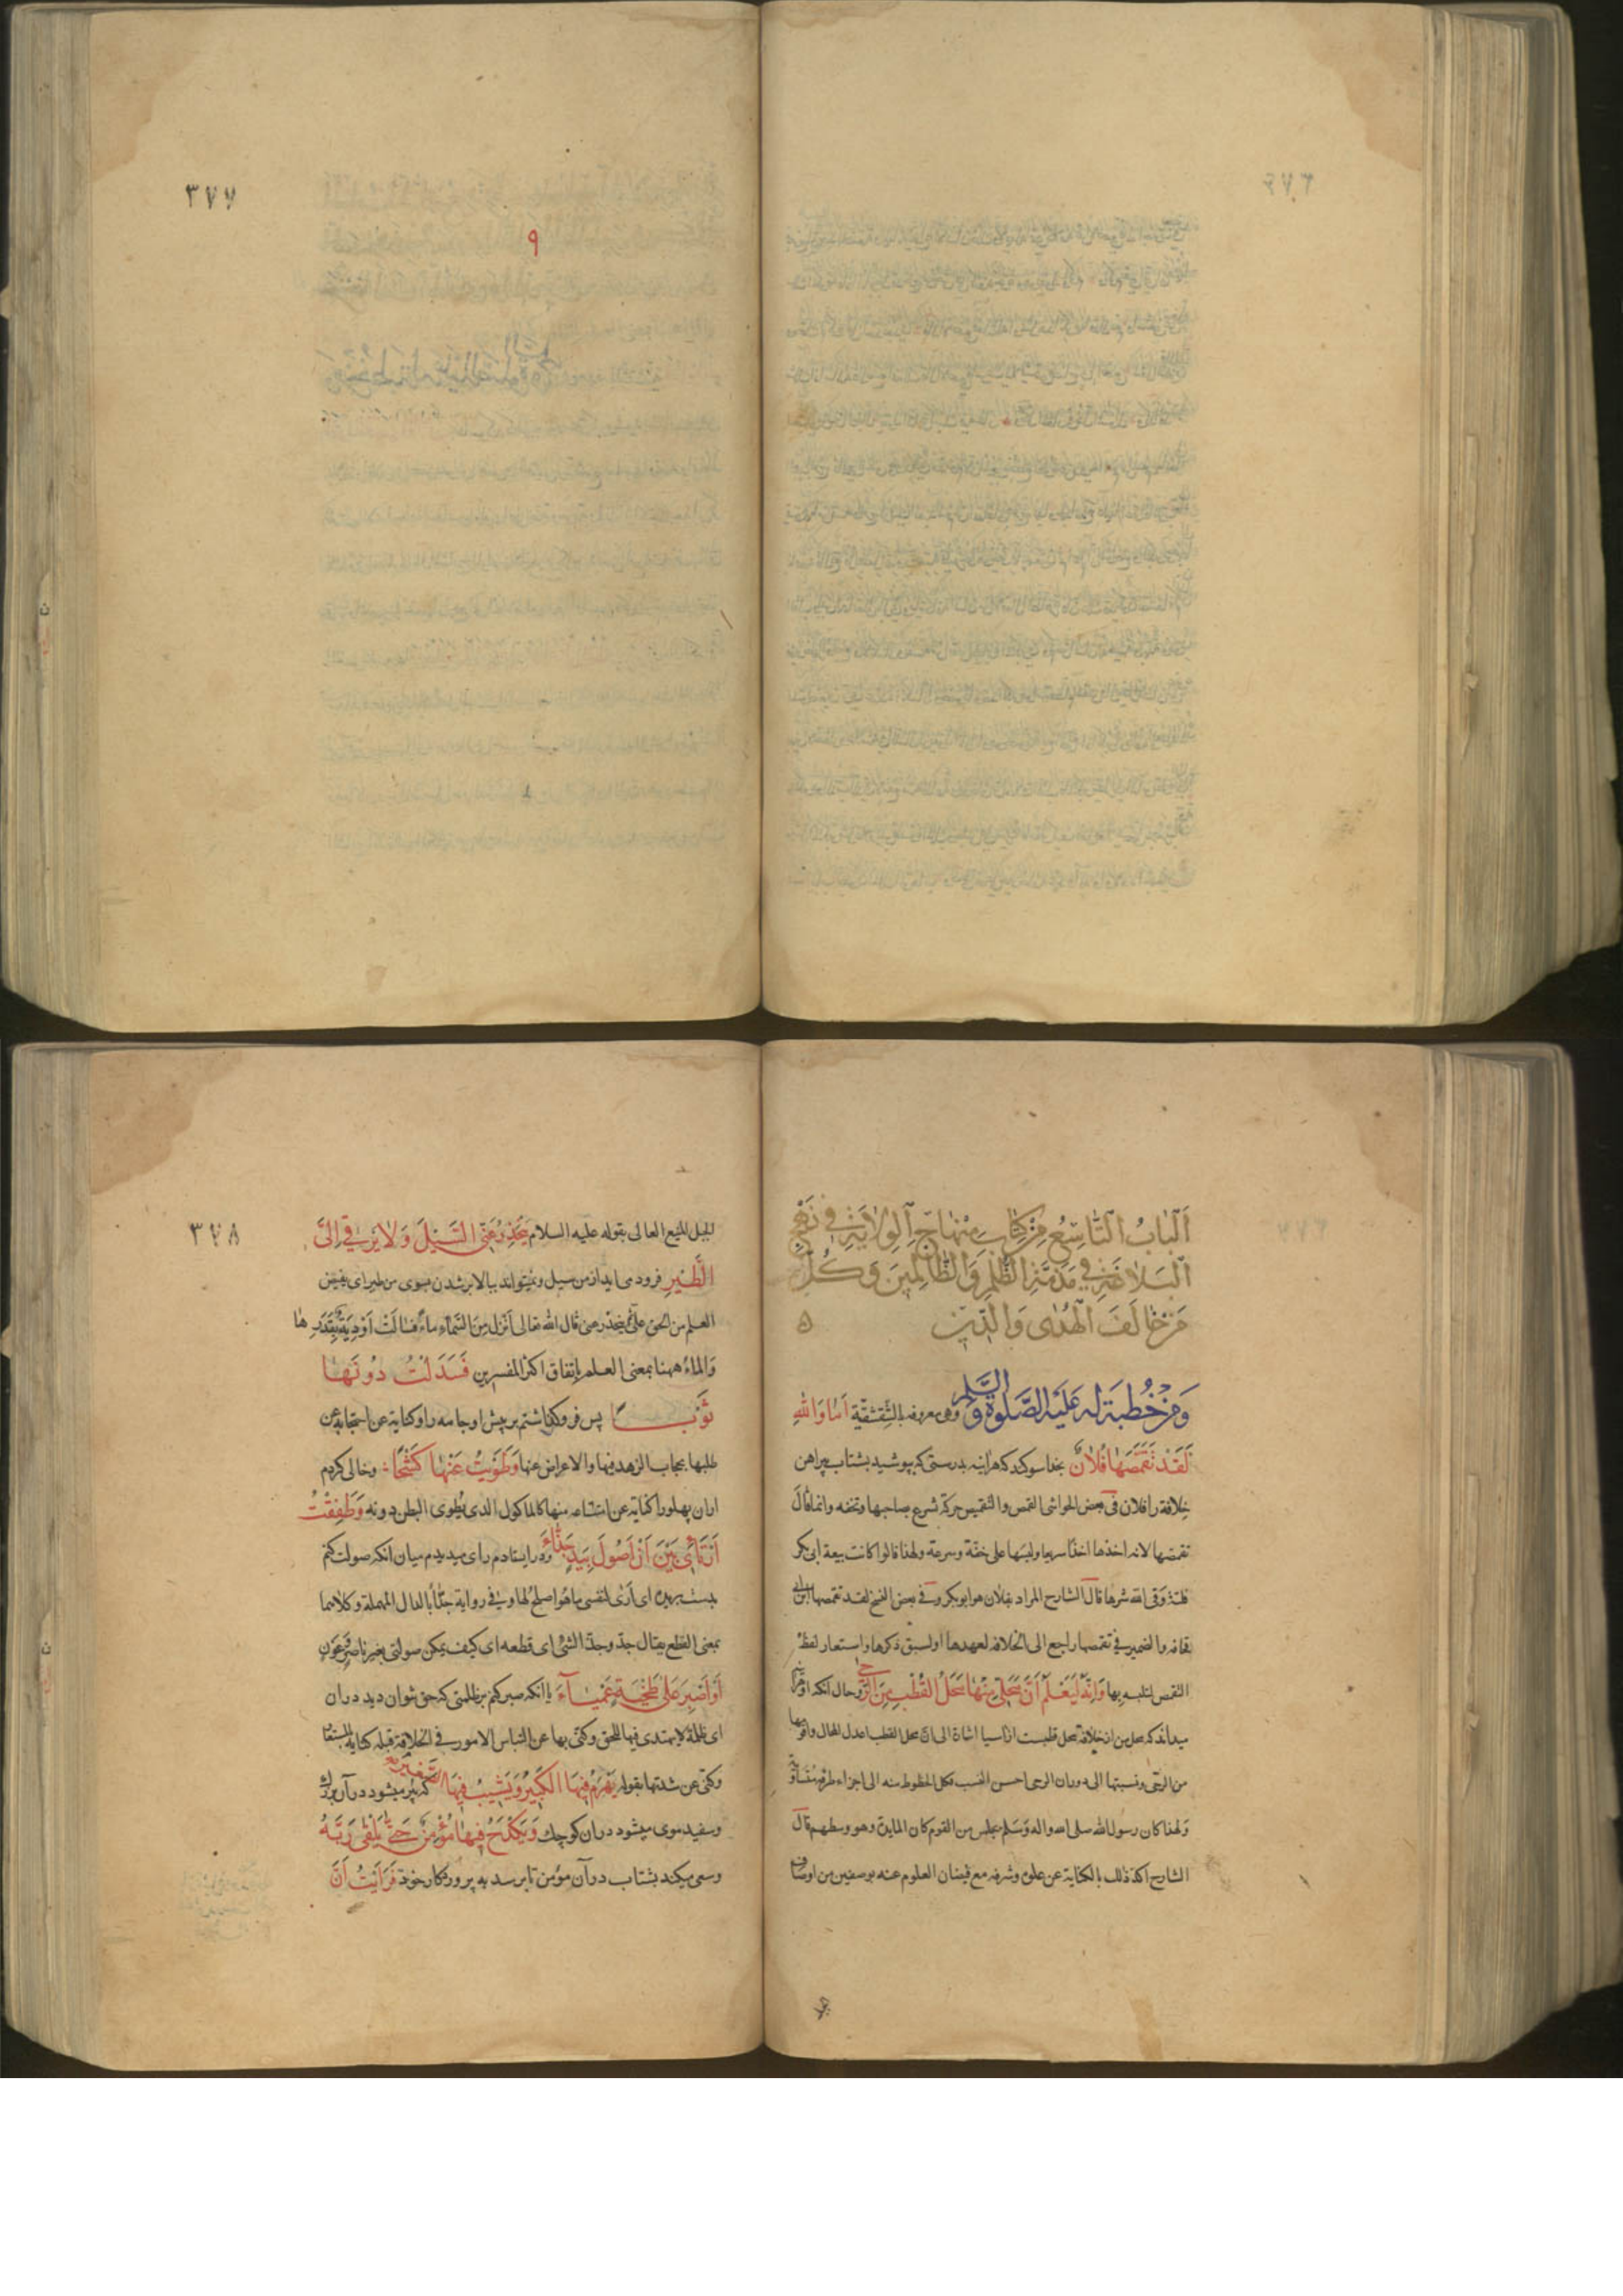 ٣٧٧
٩
اَلْبَابُ التَّاسِعُ مِنْ كِتَابِ مِنْهَاجِ الْوِلَايَةِ فِي نَهْجِ
الْبَلَاغَةِ فِي مَذَمَّةِ الظُّلْمِ وَالظَّالِمِينَ وَكُلِّ
مَنْ خَالَفَ الْهُدٰى وَالدِّينَ ۵
وَمِنْ خُطْبَةٍ لَهُ عَلَيْهِ الصَّلٰوةُ وَالسَّلٰم وهى معروفه بالشقشقيّة اَمَا وَاللهِ
لَقَدْ تَقَمَّصَهَا فُلَانٌ بخدا سوكند كه هراينه بدرستى كه بپوشيد بشتاب پيراهن
خلافة را فلان فى بعض الحواشى القمص والتقميص حركة شرع صاحبها وتخه وانما قال
تقمصها لانه اخذها اخذًا سريعا ولبسها على خفة وسرعة ولهذا قالوا كانت بيعة ابى بكر
فلتة وقى الله شرها قال الشارح المراد بفلان هو ابو بكر وفى بعض النسخ لقد تقمصها ابن ابى
قحافه والضمير فى تقمصها راجع الى الخلافه لعهدها او لسبق ذكرها واستعار لفظ
التقمص لتلبسه بها وَاِنَّهُ لَيَعْلَمُ اَنَّ مَحَلِّى مِنْهَا مَحَلُّ الْقُطْبِ مِنَ الرَّحٰى وحال آنكه او هراينه
ميداند كه محل من از خلافة محل قطبست از آسيا اشارة الى ان محل القطب اعدل المحال واقربها
من الرحى ونسبتها الى دوران الرحى احسن النسب فكل الخطوط منه الى اجزاء طرفه متساوية
ولهذا كان رسول الله صلى الله واله وسلم مجلس من القوم كان المايدة وهو وسطهم قال
الشارح اكد ذلك بالكناية عن علوّه وشرفه مع فيضان العلوم عنه بوصفين من اوصاف
٣٧٨
الجبل المنيع العالى بقوله عليه السلام يَنْحَدِرُ عَنِّى السَّيْلُ وَلَا يَرْقٰى اِلَىَّ
الطَّيْرُ فرود مى ايد از من سيل ونميتواند ببالا بر شدن بسوى من طير اى يفيض
العلم من الحق علىّ ثم ينحدر عنى قال الله تعالى اَنْزَلَ مِنَ السَّمَاءِ مَاءً فَسَالَتْ اَوْدِيَةٌ بِقَدَرِهَا
وَالماءُ ههنا بمعنى العلم باتفاق اكثر المفسرين فَسَدَلْتُ دُونَهَا
ثَوْبًا پس فرو كذاشتم بر پيش او جامه را وكناية عن احتجابه عن
طلبها بحجاب الزهد فيها والاعراض عنها وَطَوَيْتُ عَنْهَا كَشْحًا وخالى كردم
ازان پهلو را كناية عن امتناعه منها كالماكول الذى يُطوى البطن دونه وَطَفِقْتُ
اَرْتَأِى بَيْنَ اَنْ اَصُولَ بِيَدٍ جَذَّاءَ ودر ايستادم راى ميديدم ميان انكه صولت كنم
بدست بريده اى اَرٰى لنفسى ما هُوَ اصلح لها وفى رواية جدّاء بالدال المهملة وكلاهما
بمعنى القطع يقال جدّ وجذّ الشئ اى قطعه اى كيف يمكن صولتى بغير ناصر وعون
اَوْ اَصْبِرَ عَلٰى طَخْيَةٍ عَمْيَاءَ يا انكه صبر كنم بر ظلمتى كه حق نتوان ديد دران
اى ظلمة لا يهتدى فيها للحق وكنى بها عن التباس الامور فى الخلافة قبله
وكنّى عن شدتها بقوله يَهْرَمُ فِيهَا الْكَبِيرُ وَيَشِيبُ فِيهَا الصَّغِيرُ كه پير ميشود در آن بزرك
وسفيد موى ميشود دران كوچك وَيَكْدَحُ فِيهَا مُؤْمِنٌ حَتّٰى يَلْقٰى رَبَّهُ
وسعى ميكند بشتاب در آن مؤمن تا برسد به پروردكار خود فَرَاَيْتُ اَنَّ